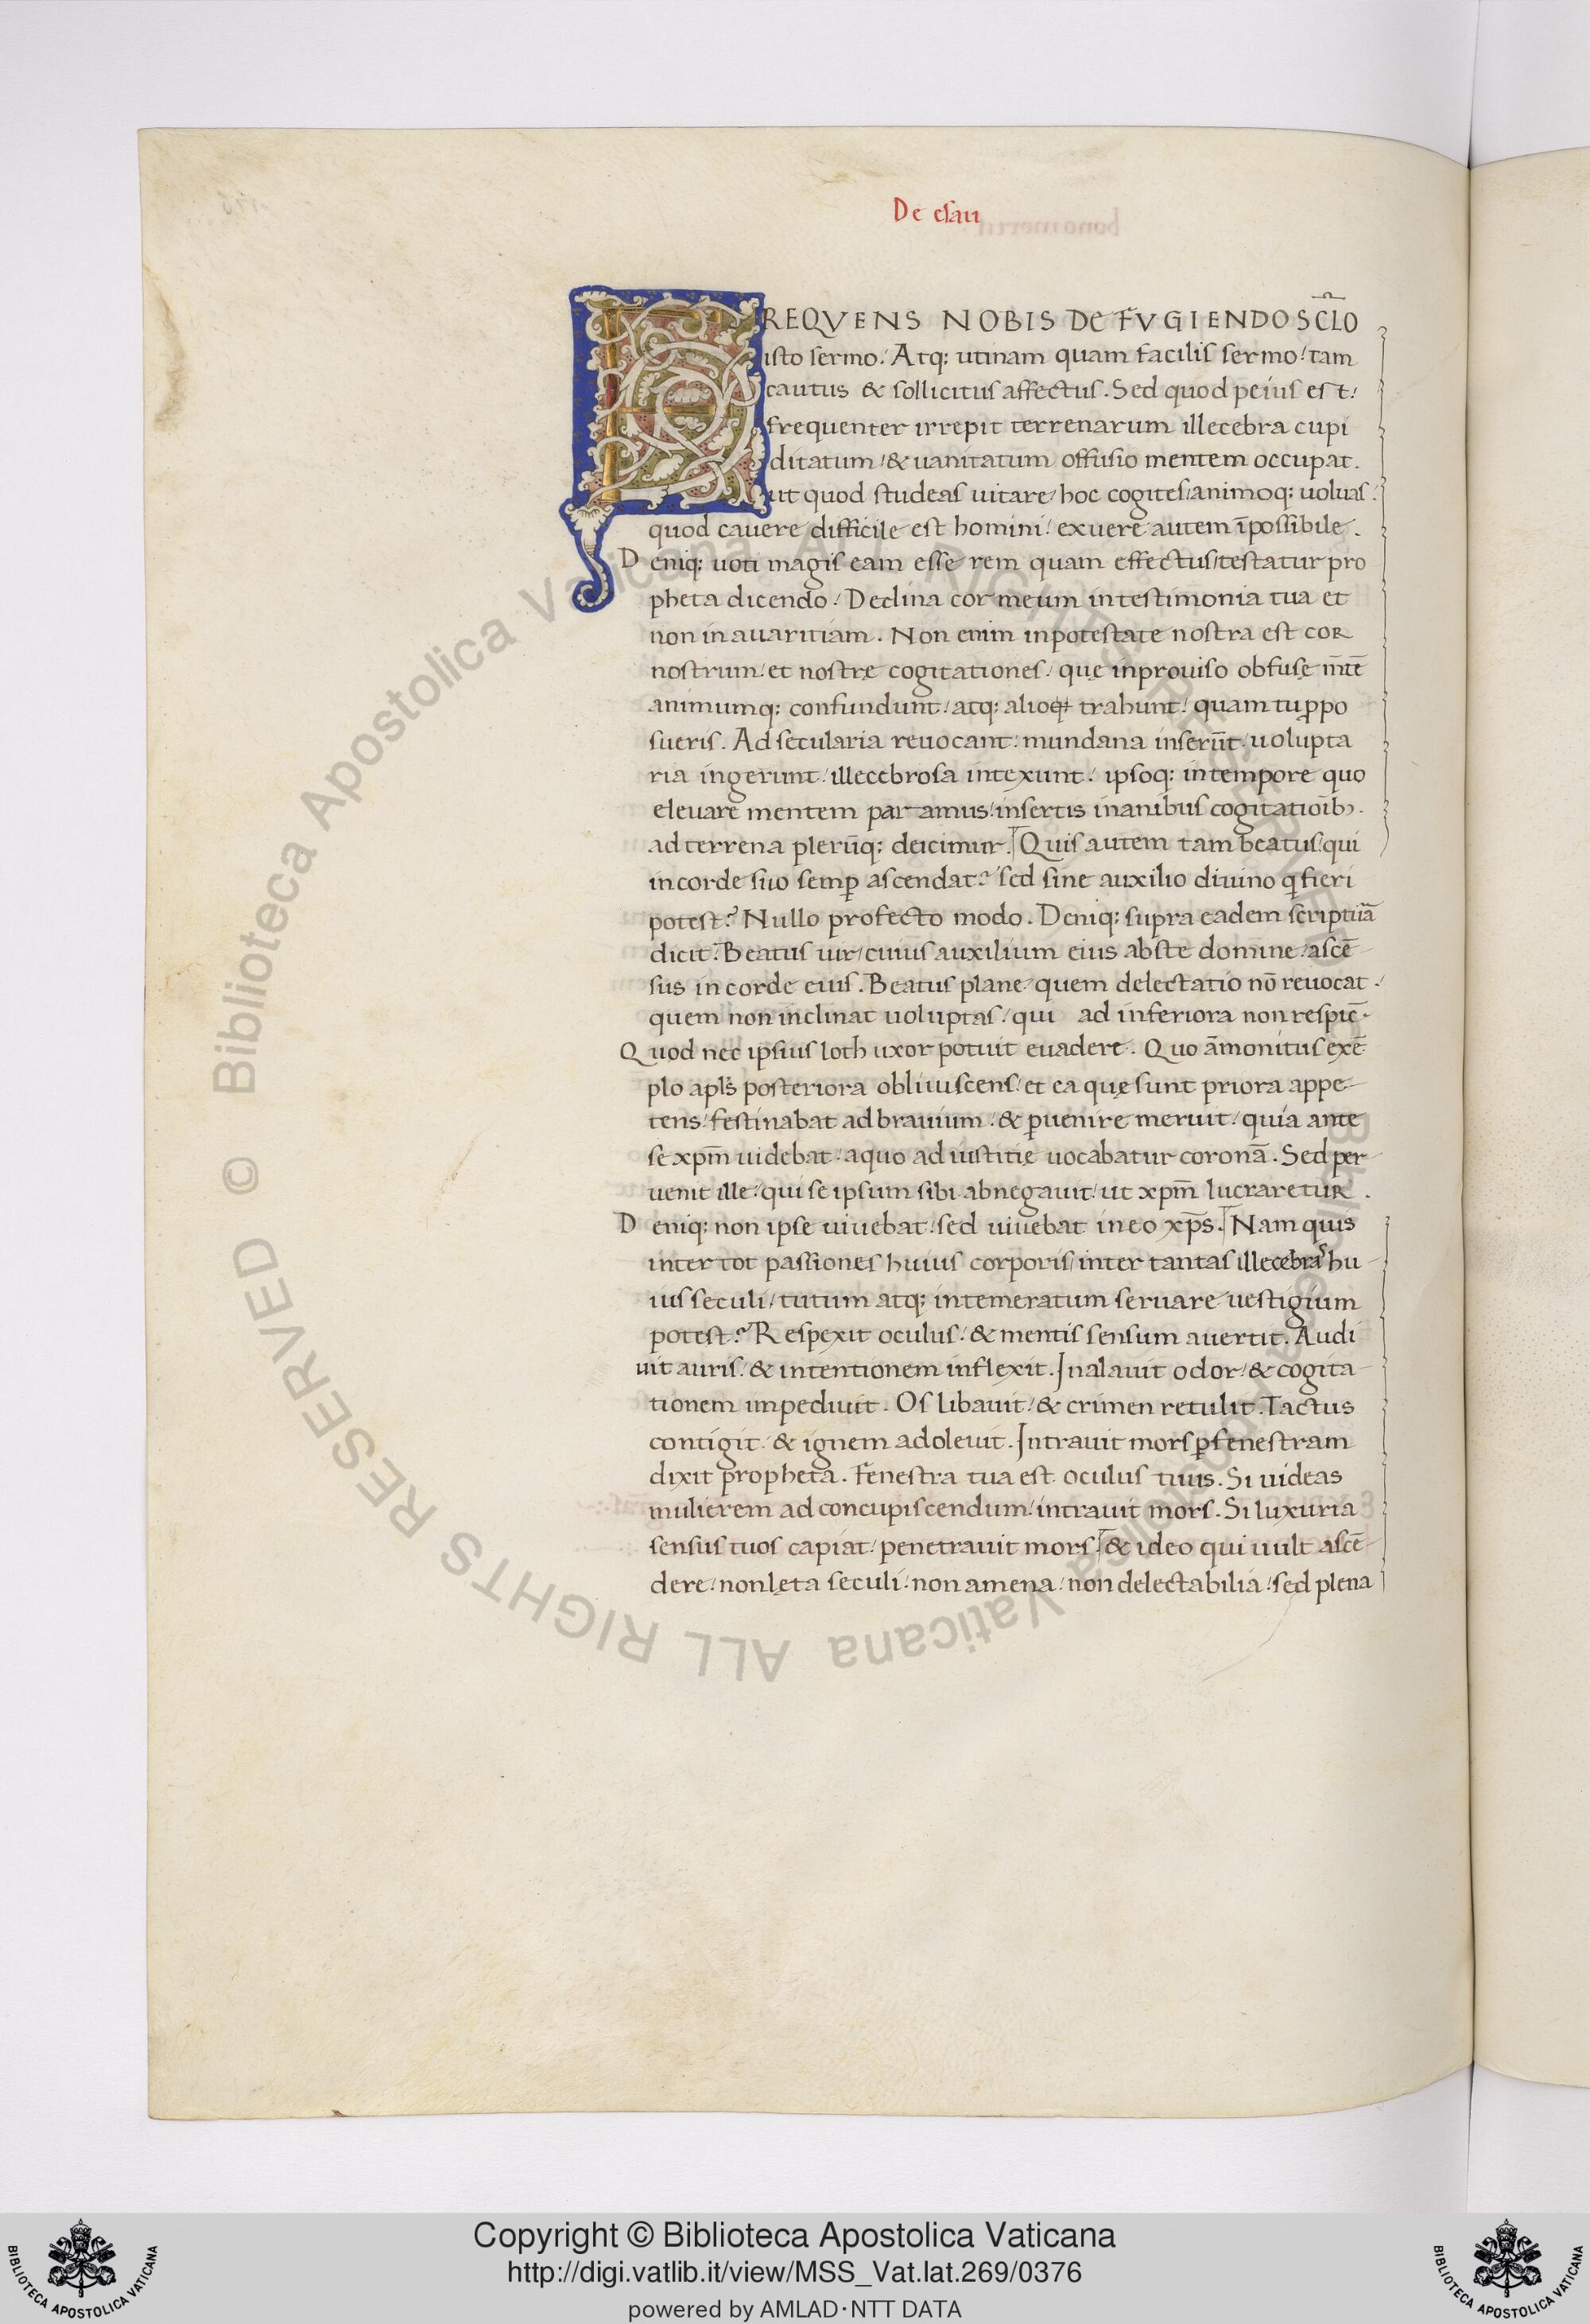 De esau
FREQVENS NOBIS De FVGIENDO SCL̄O
isto sermo. Atq; utinam quam facilis sermo tam
cautus & sollicitus affectus. Sed quod peius est
frequenter irrepit terrenarum illecebra cupi
ditatum & uanitatum offusio mentem occupat.
ut quod studeas uitare hoc cogites animoq; uoluas.
quod cauere difficile est homini exuere autem īpossibile.
Deniq; uoti magis eam esse rem quam effectus testatur pro
pheta dicendo. Declina cor meum in testimonia tua et
non in auaritiam. Non enim in potestate nostra est cor
nostrum et nostrę cogitationes quę inprouiso obfusę m̄tē
animumq; confundunt atq; alioq trahunt quam tu ꝓpo
sueris. Ad secularia reuocant mundana inserūt uolupta
ria ingerunt illecebrosa intexunt. ipsoq; in tempore quo
eleuare mentem paramus insertis inanibus cogitatioībꝫ.
ad terrena plerūq; deicimur. Quis autem tam beatus qui
in corde suo semꝑ ascendat? sed sine auxilio diuino q fieri
potest? Nullo profecto modo. Deniq; supra eadem scriptura
dicit. Beatus uir cuius auxilium eius abs te domine ascē
sus in corde eius. Beatus plane quem delectatio nō reuocat.
quem non inclinat uoluptas qui ad inferiora non respic̄.
Quod nec ipsius loth uxor potuit euadere. Quo āmonitus exē
plo apl's posteriora obliuiscens et ea quę sunt priora appe
tens festinabat ad brauium & ꝑuenire meruit quia ante
se xpm̄ uidebat a quo ad iustitię uocabatur coronā. Sed per
uenit ille qui se ipsum sibi abnegauit ut xpm̄ lucraretur.
Deniq; non ipse uiuebat sed uiuebat in eo xp̄s. Nam quis
inter tot passiones huius corporis inter tantas illecebras hu
ius seculi tutum atq; intemeratum seruare uestigium
potest? Respexit oculus & mentis sensum auertit. Audi
uit auris & intentionem inflexit. Inalauit odor & cogita
tionem impediuit. Os libauit & crimen retulit. Tactus
contigit & ignem adoleuit. Intrauit mors ꝑ fenestram
dixit propheta. Fenestra tua est oculus tuus. Si uideas
mulierem ad concupiscendum intrauit mors. Si luxuria
sensus tuos capiat penetrauit mors. & ideo qui uult ascē
dere non lęta seculi non amena non delectabilia sed plena
© Biblioteca Apostolica Vaticana ALL RIGHTS RESERVED
© Biblioteca Apostolica Vaticana ALL RIGHTS RESERVED
Copyright © Biblioteca Apostolica Vaticana
http://digi.vatlib.it/view/MSS_Vat.lat.269/0376
powered by AMLAD·NTT DATA
BIBLIOTECA APOSTOLICA VATICANA
BIBLIOTECA APOSTOLICA VATICANA